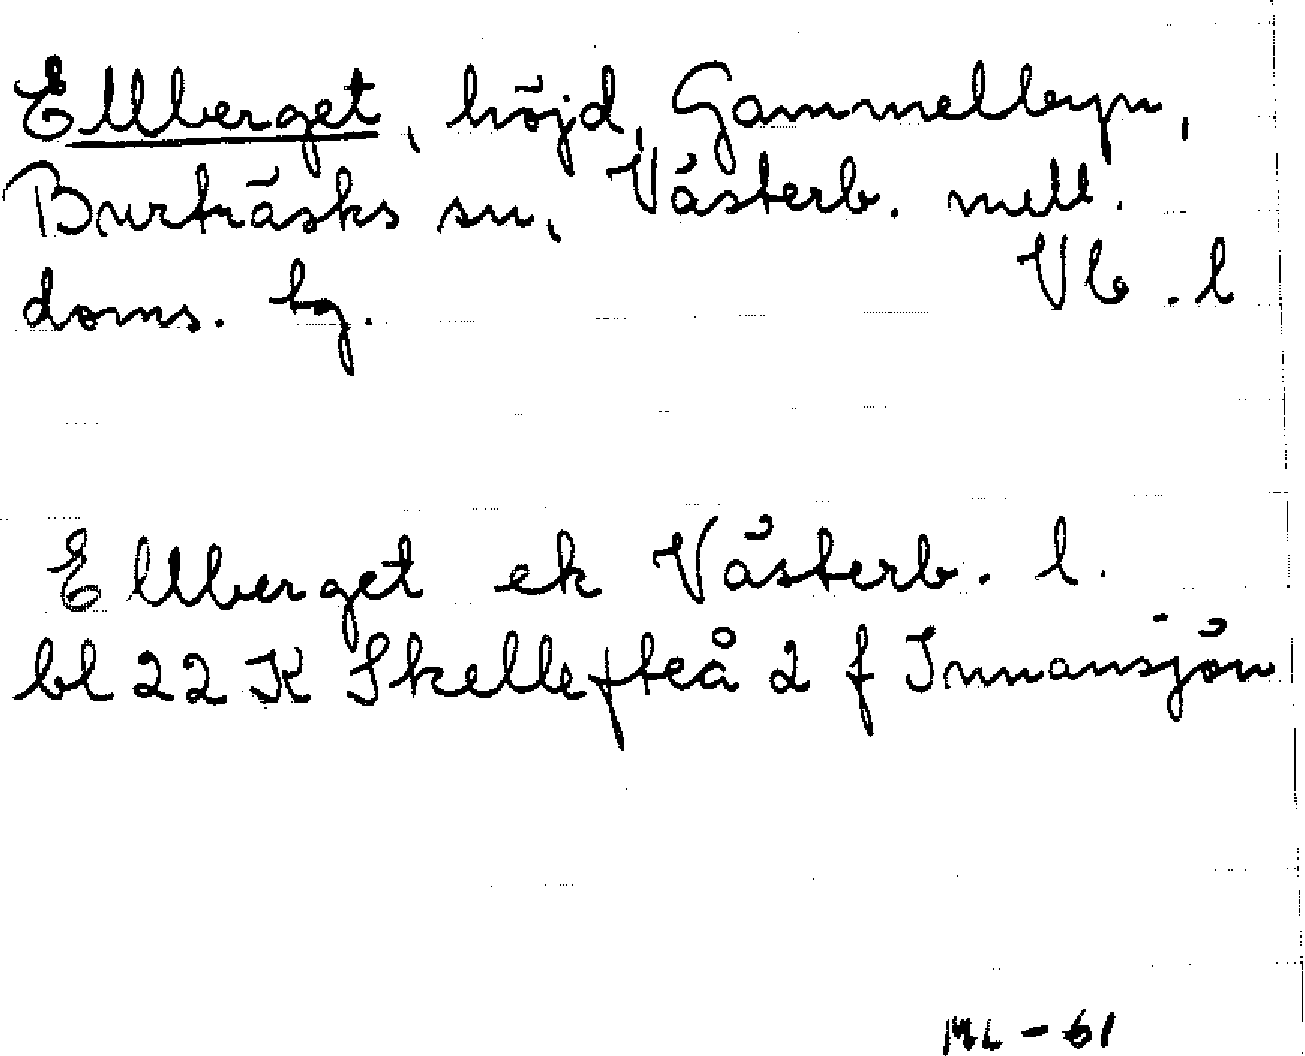 Ellberget, höjd, Gammelbyn,
Burträsks sn, Västerb. mell.
doms. bg. Vb. l
Ellberget ek Västerb. l.
bl 22 K Skellefteå 2 f Innansjön
ML - 61